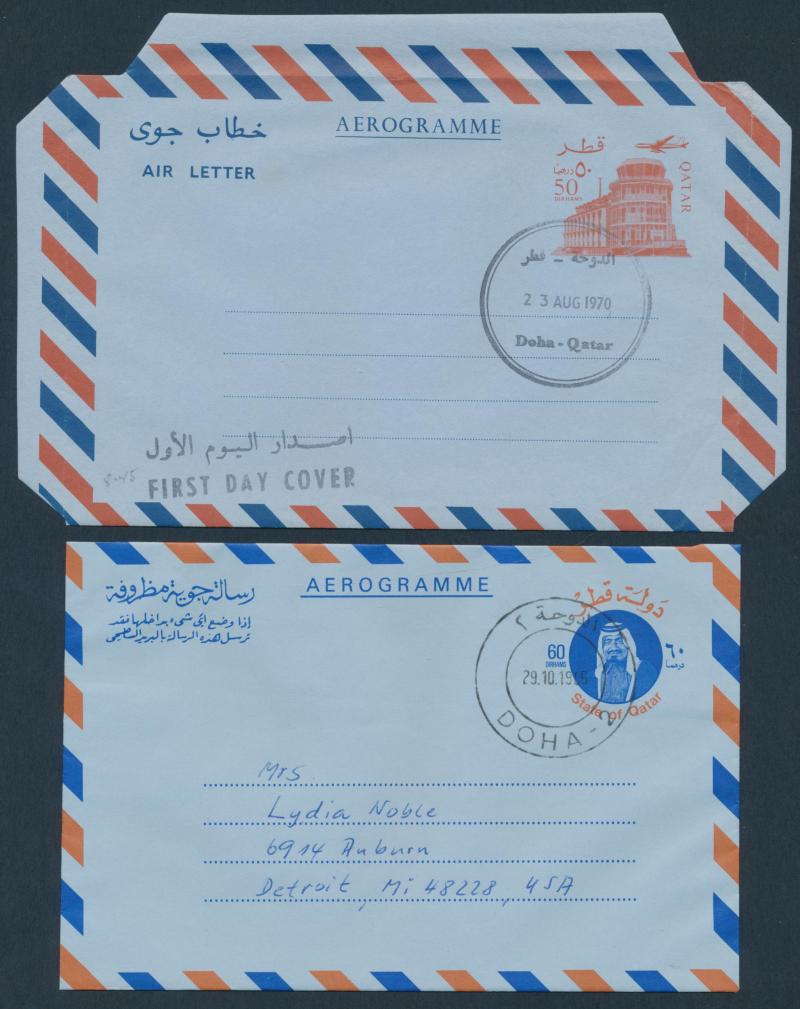 خطاب جوي
AEROGRAMME
AIR LETTER
قطر
٥٠ درهما
50
DIRHAMS
QATAR
الدوحة - قطر
23 AUG 1970
Doha-Qatar
اصدار اليوم الأول
FIRST DAY COVER
رسالة جوية مظروفة
إذا وضع أي شيء بداخلها فقد
ترسل هذه الرسالة بالبريد السطحي
AEROGRAMME
دولة قطر
60
DIRHAMS
٦٠
درهما
State of Qatar
الدوحة ٢
29.10.19
DOHA-2
Mrs.
Lydia Noble
6914 Auburn
Detroit, Mi 48228, USA